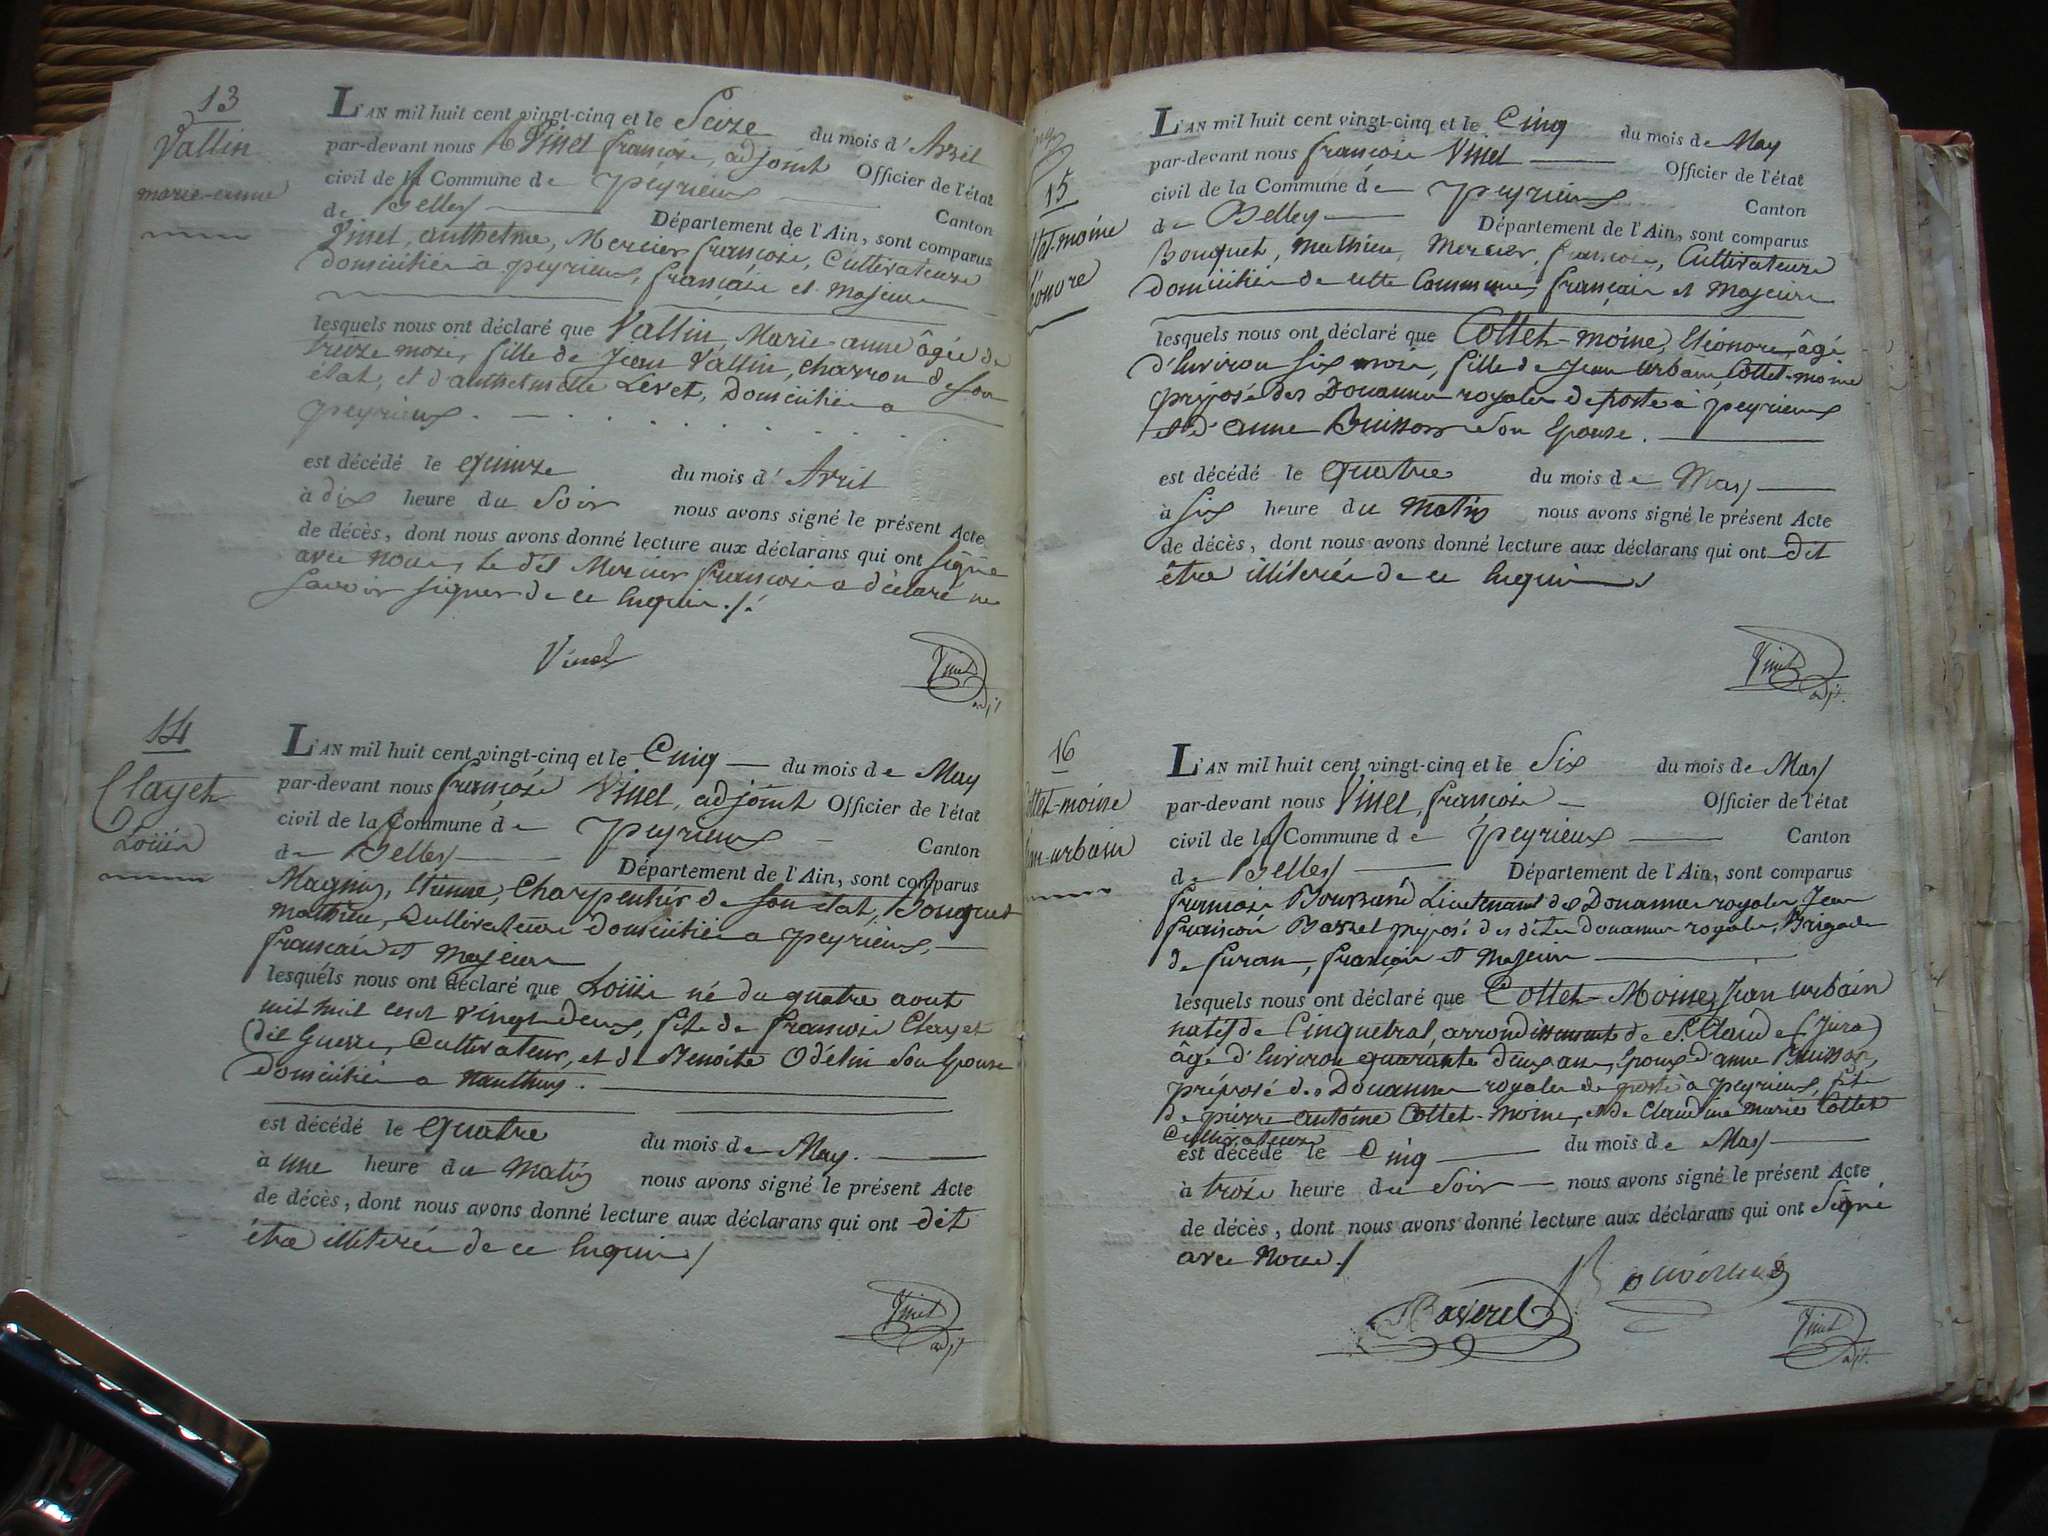 13
Vallin
marie-anne
L'AN mil huit cent vingt-cinq et le Seize du mois d'Avril
par-devant nous Vinet françois, adjoint Officier de l'état
civil de la Commune de Peyrieux Canton
de Belley Département de l'Ain, sont comparus
Vinet, anthelme, Mercier françois, Cultivateurs
domiciliés à peyrieux, français et majeurs
lesquels nous ont déclaré que Vallin Marie-anne âgée de
treize mois, fille de Jean Vallin, charron de son
état, et d'anthelmette Levet, Domiciliés a
peyrieux.
est décédé le quinze du mois d'Avril
à dix heure du Soir nous avons signé le présent Acte
de décès, dont nous avons donné lecture aux déclarans qui ont signé
avec nous, le dit Mercier françois a déclaré ne
savoir signer de ce enquis ./.
Vinet
Vinet
adjt
14
Clayet
Louis
L'AN mil huit cent vingt-cinq et le Cinq du mois de May
par-devant nous françois Vinet, adjoint Officier de l'état
civil de la Commune de Peyrieux Canton
de Belley Département de l'Ain, sont comparus
Magnin, Etienne, Charpentier de son état, Bouquet
mathieu, Cultivateurs domiciliés a peyrieux,
français et majeurs
lesquels nous ont déclaré que né du quatre aout
mil huit cent vingt deux, fils de françois Clayet
dit Guerre, Cultivateur, et de Benoite Odelin son Epouse
domiciliés a Nanthuy.
est décédé le quatre du mois de May.
à une heure du Matin nous avons signé le présent Acte
de décès, dont nous avons donné lecture aux déclarans qui ont dit
être illiterés de ce enquis /
Vinet
adjt
15
L'AN mil huit cent vingt-cinq et le Cinq du mois de May
par-devant nous françois Vinet Officier de l'état
civil de la Commune de Peyrieux Canton
de Belley Département de l'Ain, sont comparus
Bouquet, Mathieu, Mercier, françois, Cultivateurs
domiciliés de cette Commune, français et majeurs
lesquels nous ont déclaré que Cottet-moine, Eléonore, âgé
d'Environ six mois, fille de Jean Urbain Cottet-moine
préposé des Douannes royales de poste à peyrieux
et d'anne Buisson son Epouse.
est décédé le quatre du mois de May
à six heure du matin nous avons signé le présent Acte
de décès, dont nous avons donné lecture aux déclarans qui ont dit
être illiterés de ce enquis
Vinet
adjt.
16
L'AN mil huit cent vingt-cinq et le Six du mois de May
par-devant nous Vinet, françois Officier de l'état
civil de la Commune de peyrieux Canton
de Belley Département de l'Ain, sont comparus
françois Lieutenant des Douannes royales, Jean
françois préposé des dites douannes royales, Brigade
de furan, français et majeurs
lesquels nous ont déclaré que Cottet-Moine, Jean urbain
natif de Cinquetral, arrondissement de St Claude (Jura)
âgé d'Environ quarante deux ans, Epoux d'anne Buisson,
préposé des Douannes royales de poste à peyrieux, fils
de pierre antoine Cottet-moine, et de Claudine marie Cottet
Cultivateurs
est décédé le Cinq du mois de May
à trois heure du Soir nous avons signé le présent Acte
de décès, dont nous avons donné lecture aux déclarans qui ont signé
avec nous /
Vinet
adjt.